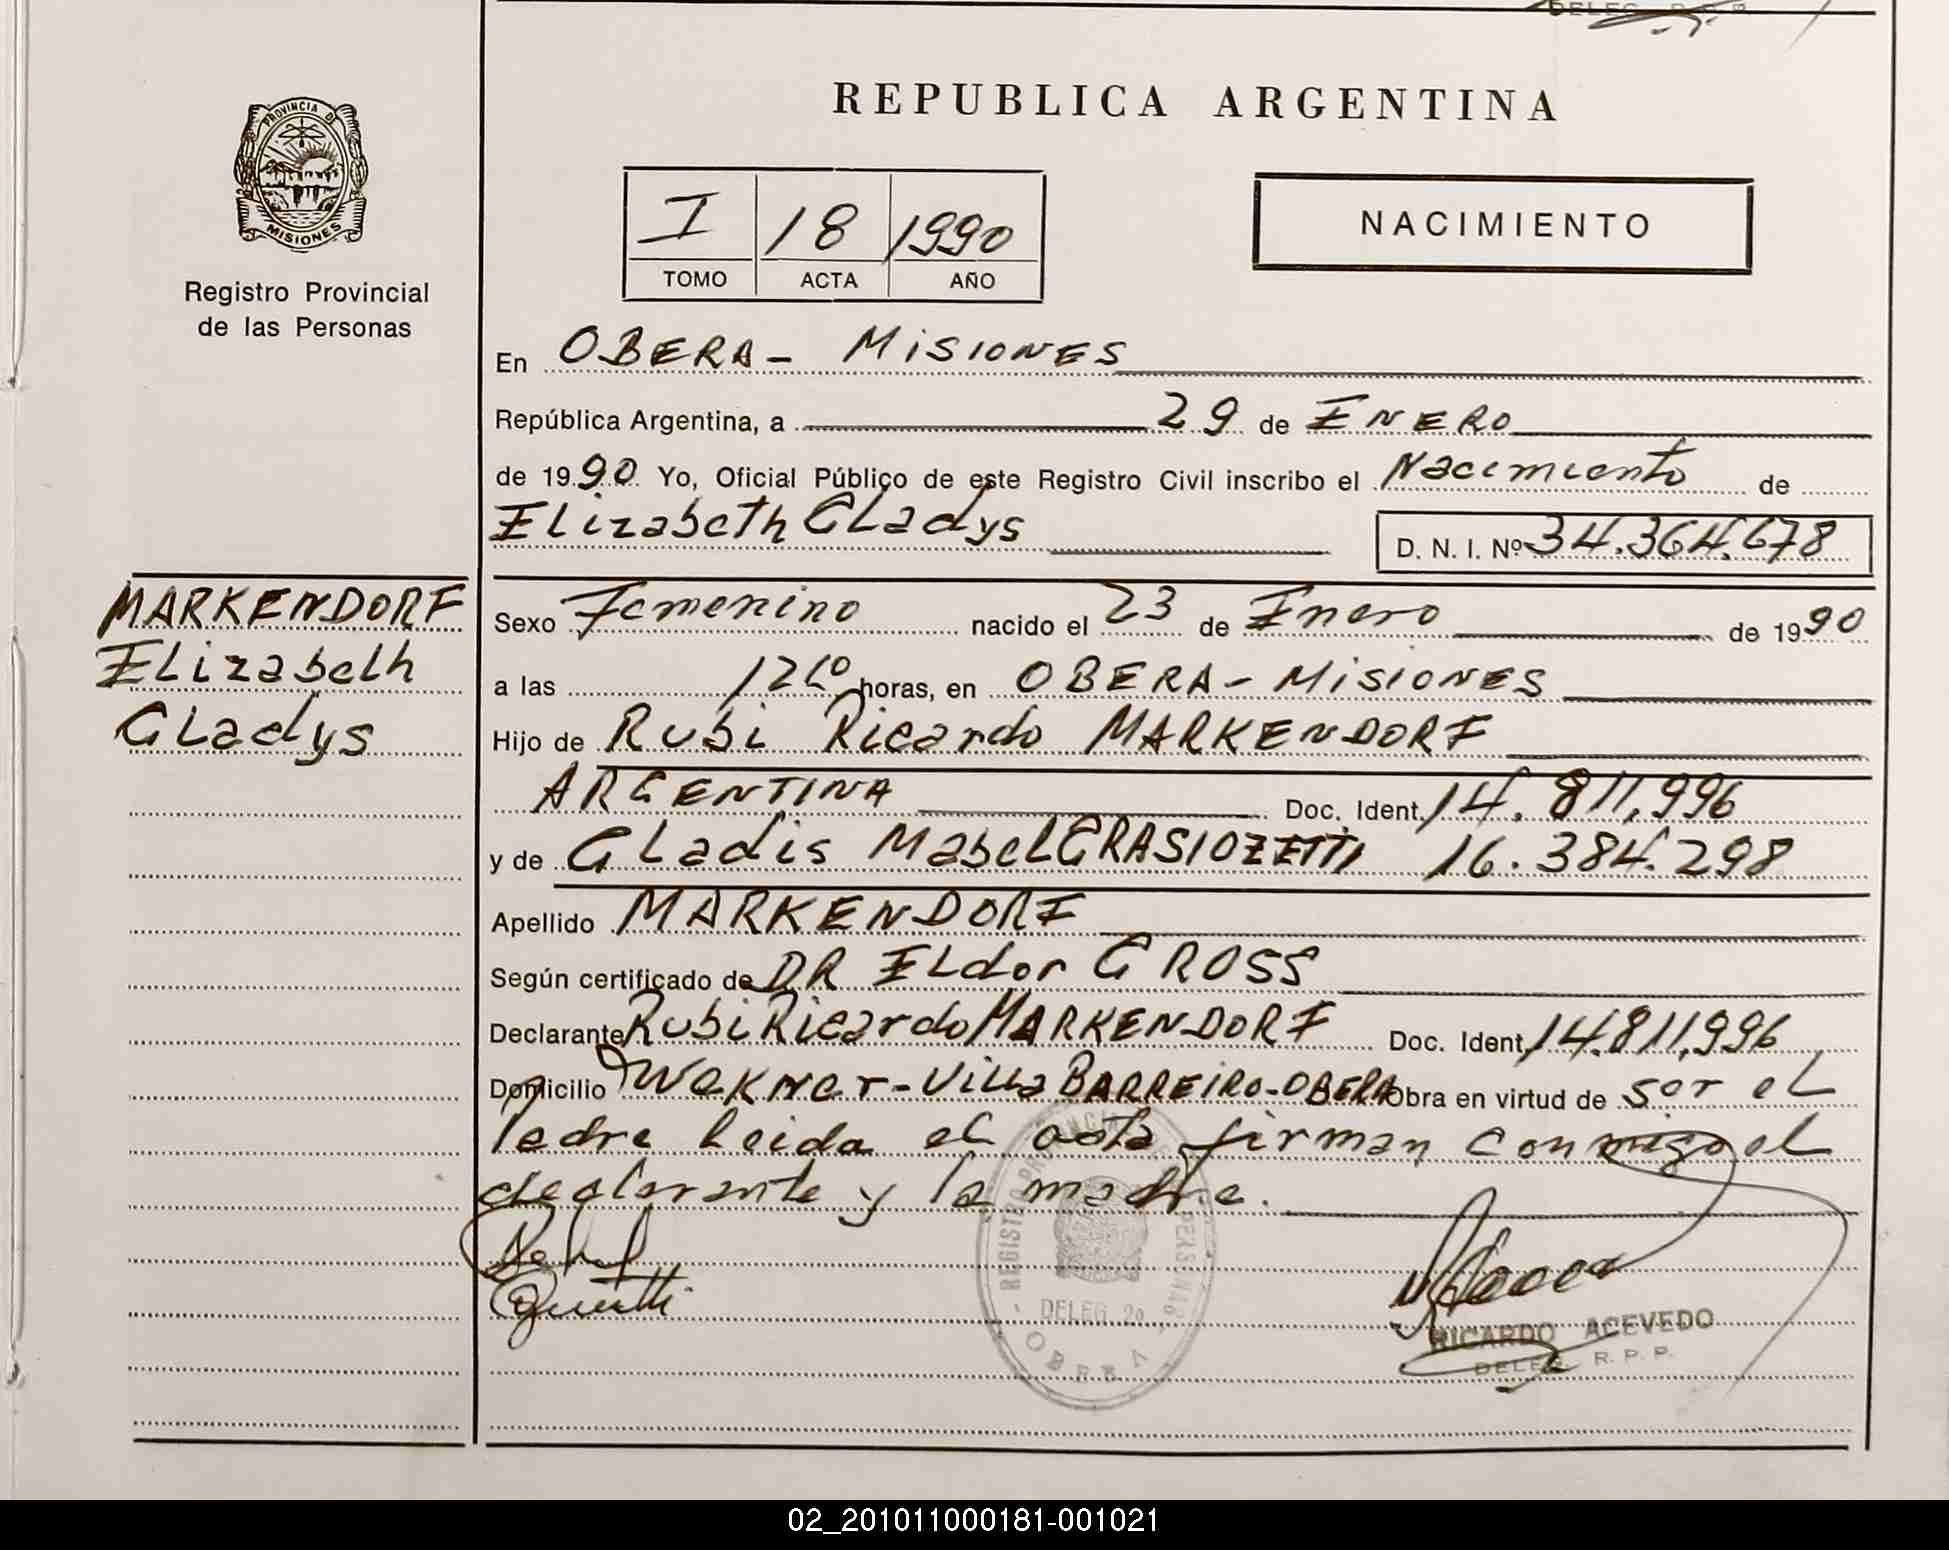 DELEG. R. P. P.
REPUBLICA ARGENTINA
PROVINCIA DE
MISIONES
I 18 1990
TOMO ACTA AÑO
NACIMIENTO
Registro Provincial
de las Personas
En OBERA - MISIONES
República Argentina, a 29 de ENERO
de 1990 Yo, Oficial Público de este Registro Civil inscribo el Nacimiento de
Elizabeth Gladys D. N. I. Nº 34.364.678
MARKENDORF
Elizabeth
Gladys
Sexo Femenino nacido el 23 de Enero de 1990
a las horas, en OBERA - MISIONES
Hijo de Rubi Ricardo MARKENDORF
ARGENTINA Doc. Ident. 14.811.996
y de Gladis Mabel GRASIOZETTI 16.384.298
Apellido MARKENDORF
Según certificado de DR Eldor GROSS
Declarante Rubi Ricardo MARKENDORF Doc. Ident. 14.811.996
Domicilio - Villa BARREIRO - OBERA Obra en virtud de ser el
Padre leida el acta firman conmigo el
declarante y la madre.
REGISTRO PROVINCIAL DE LAS PERSONAS
DELEG. 2a
OBERA
RICARDO ACEVEDO
DELEG. R. P. P.
02_201011000181-001021